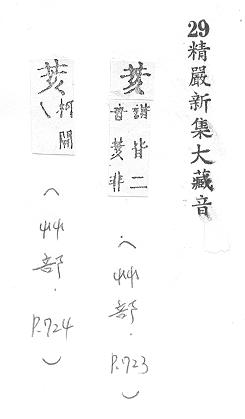 29精嚴新集大藏音
諧皆二
音 非
(艸部.P.723)
柯開
(艸部.P.724)